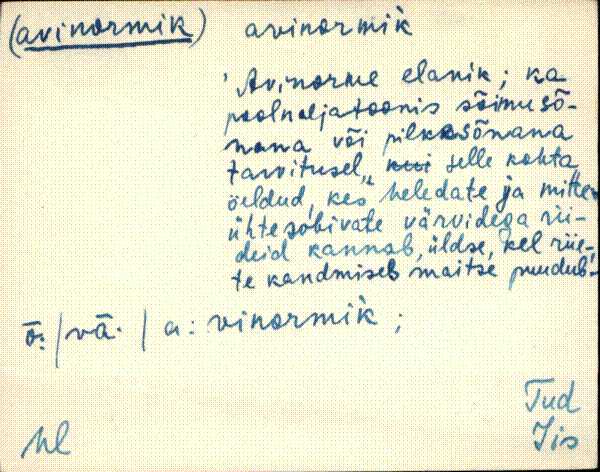 (avinormik) avinormik
'Avinorme elanik; ka
poolnaljatoonis sõimusõ-
nana või pilkesõnana
tarvitusel, kui selle kohta
öeldud, kes heledate ja mitte
ühtesobivate värvidega rii-
deid kannab, üldse, kel riie-
te kandmiseks maitse puudub.'
õ: | vä: | a: vinormik ;
Tud
Iis